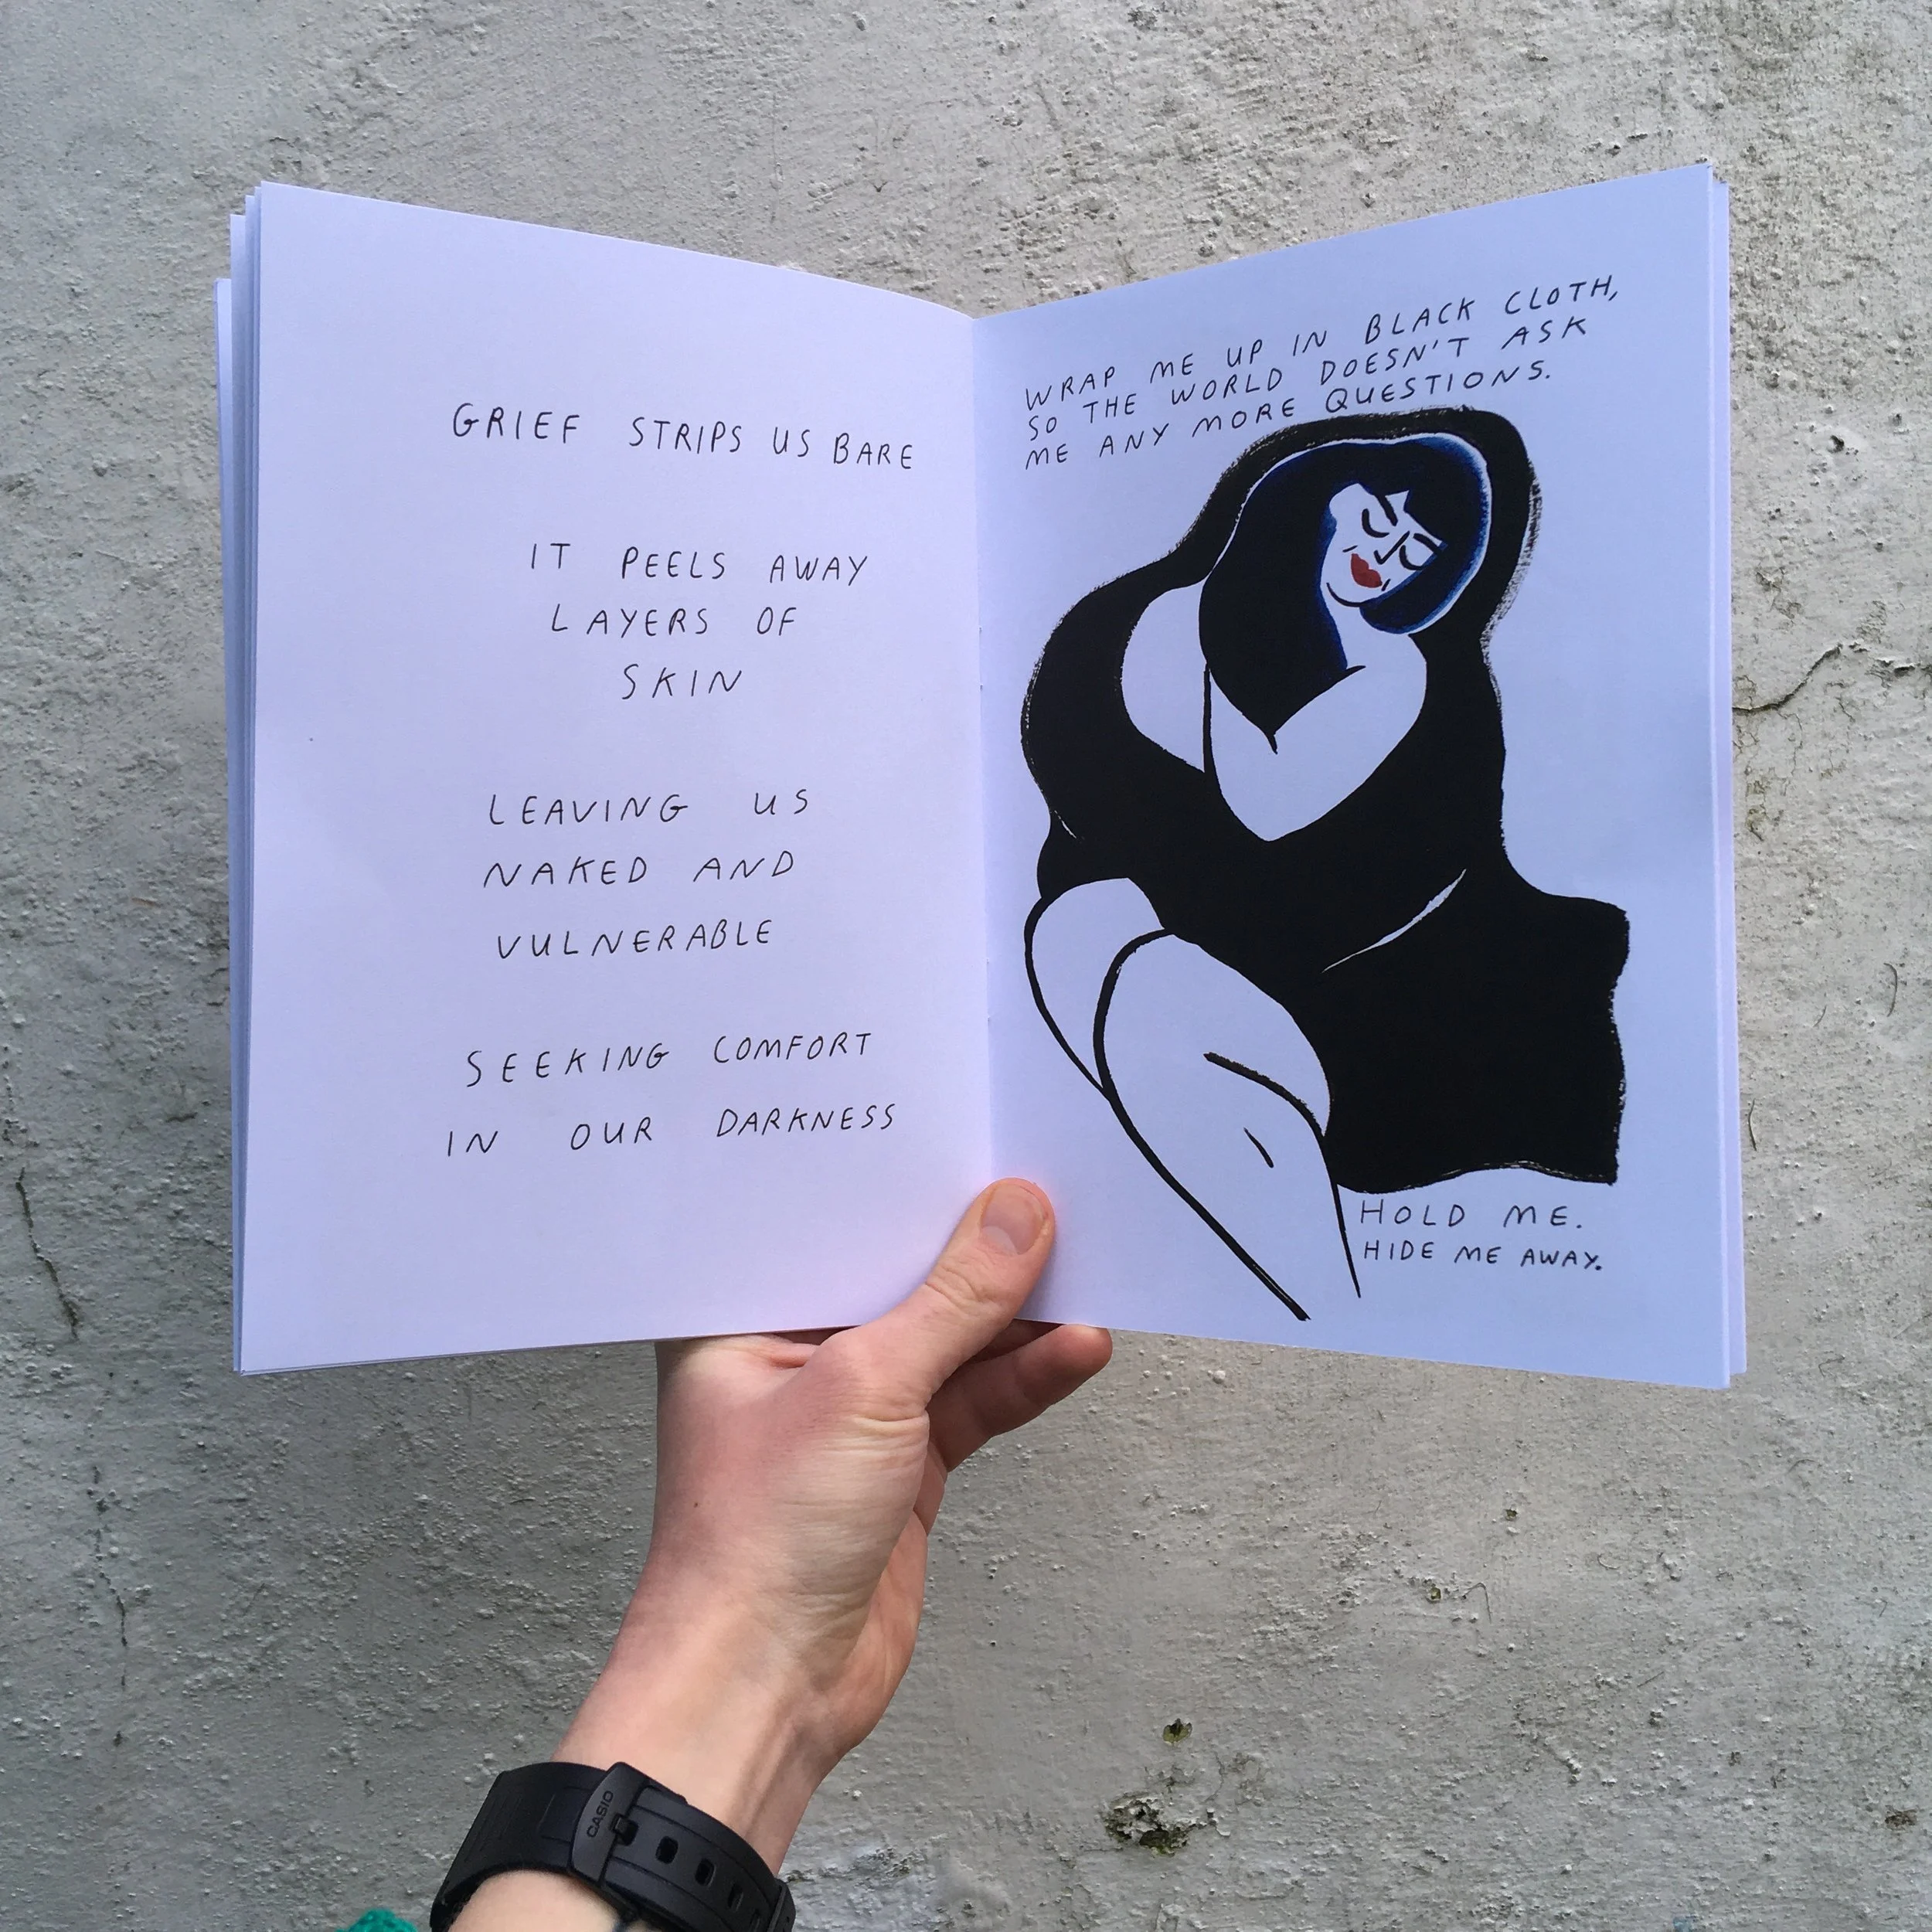 GRIEF STRIPS US BARE
IT PEELS AWAY
LAYERS OF
SKIN
LEAVING US
NAKED AND
VULNERABLE
SEEKING COMFORT
IN OUR DARKNESS
WRAP ME UP IN BLACK CLOTH,
SO THE WORLD DOESN'T ASK
ME ANY MORE QUESTIONS.
HOLD ME.
HIDE ME AWAY.
CASIO